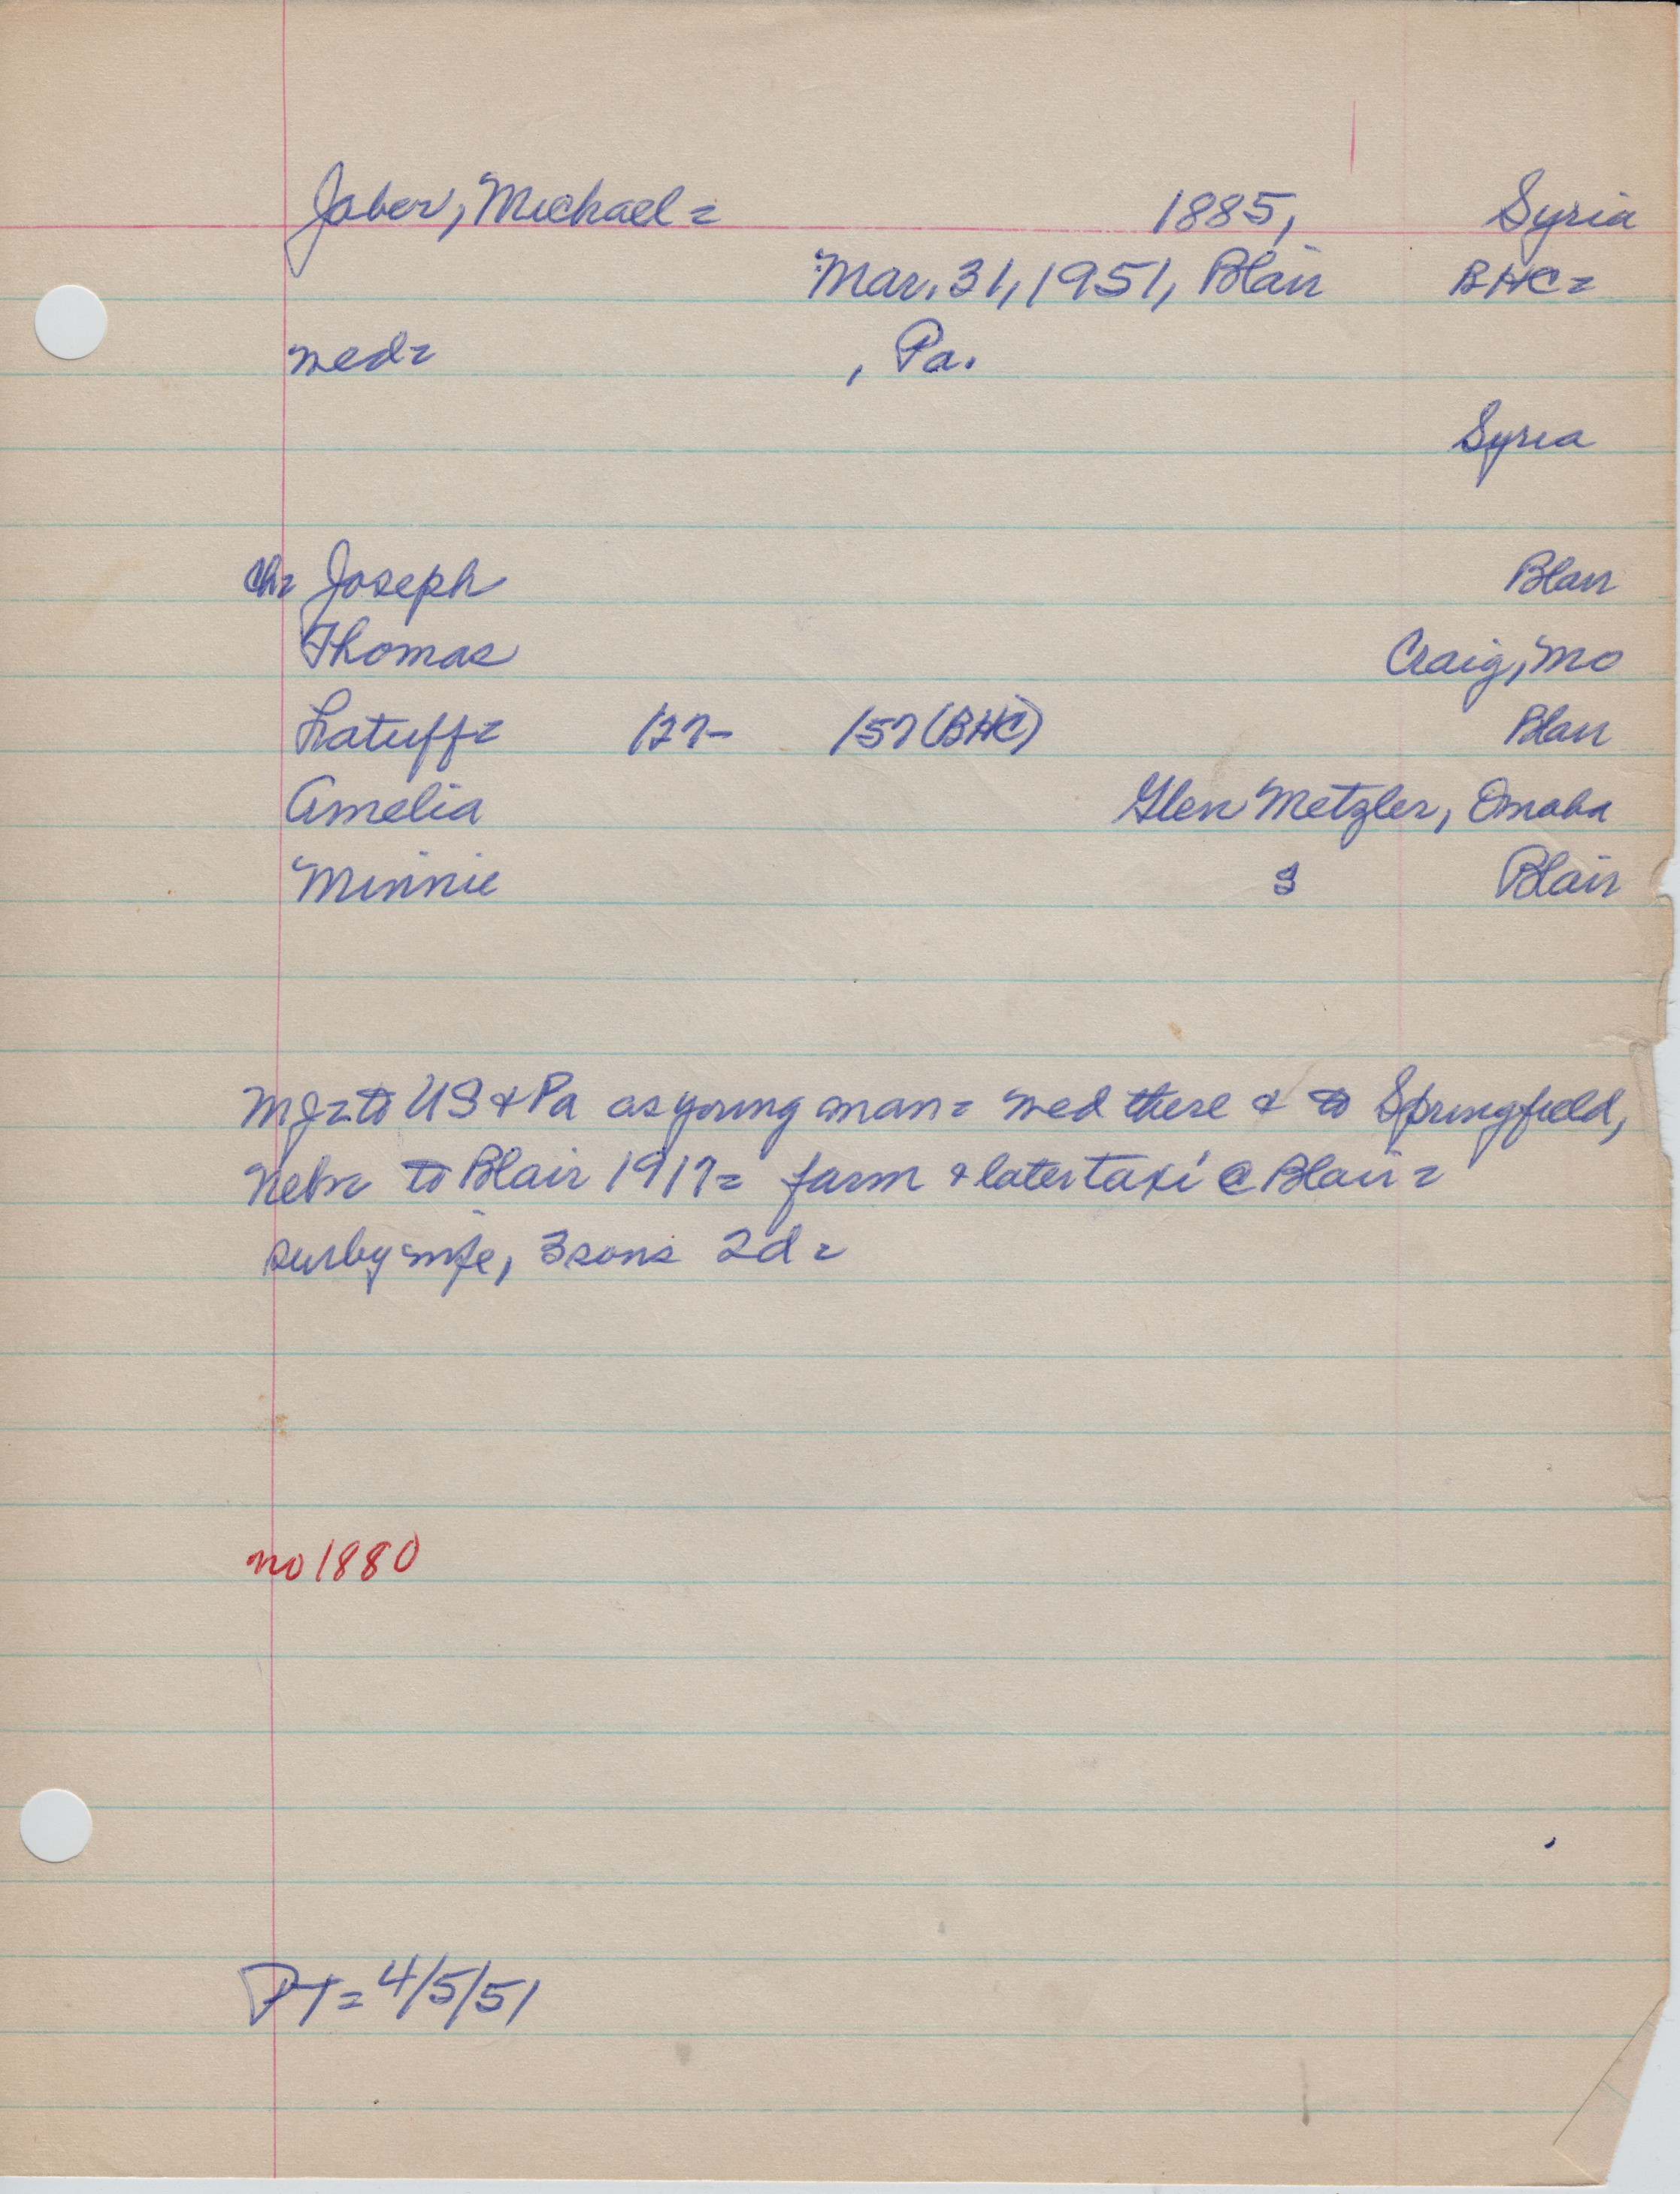 Jaber, Michael = 1885, Syria
Mar. 31, 1951, Blair BHC =
wed = , Pa.
Syria
Ch = Joseph Blair
Thomas Craig, Mo
Latuff = 127- 157 (BHC) Blair
Amelia Glen Metzler, Omaha
Minnie S Blair
MJ = to US & Pa as young man = wed there & to Springfield,
Nebr to Blair 1917 = farm & later taxi @ Blair =
surby wife, 3 sons 2d =
no 1880
PT = 4/5/51